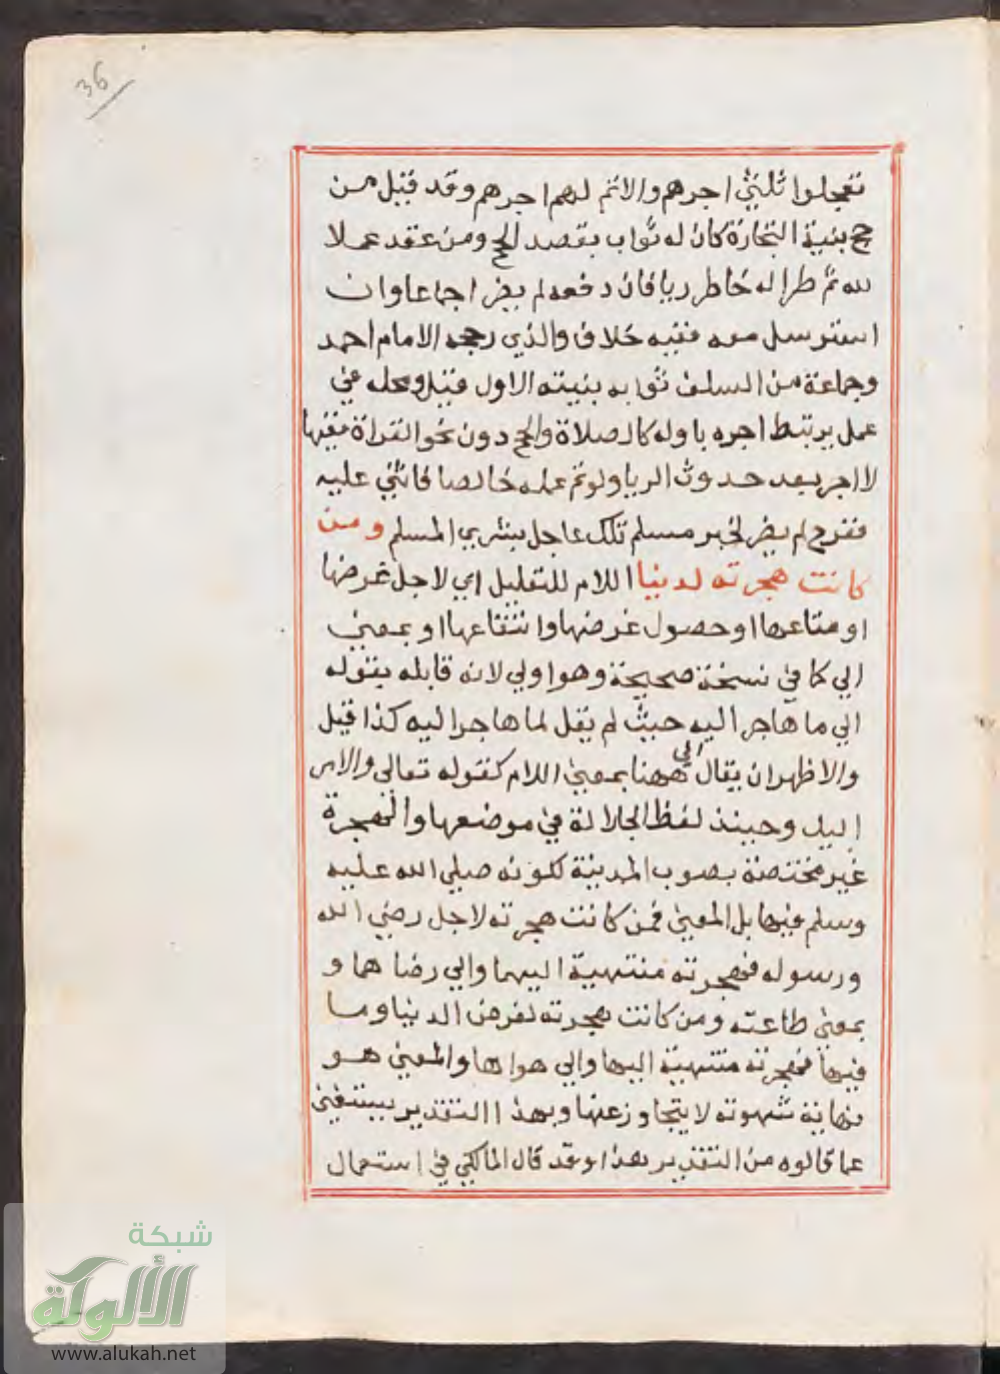 36
تعجلوا ثلثي اجرهم والاتم لهم اجرهم وقد قيل من
حج بنية التجارة كان له ثواب بقصد الحج ومن عقد عملا
لله ثم طرا له خاطر ريا فان دفعه لم يضر اجماعا وان
استرسل معه ففيه خلاف والذي رجحه الامام احمد
وجماعة من السلف ثوابه بنيته الاول قيل ومحله في
عمل يرتبط اجره باوله كالصلاة والحج دون نحو القراة ففيها
لا اجر بعد حدوث الريا ولو تم عمله خالصا فاثني عليه
ففرح لم يضر لخبر مسلم تلك عاجل بشري المسلم ومن
كانت هجرته لدنيا اللام للتعليل اي لاجل غرضها
او متاعها او حصول غرضها وانتفاعها او بمعني
الي كما في نسخة صحيحة وهو اولي لانه قابله بقوله
الي ما هاجر اليه حيث لم يقل لما هاجر اليه كذا قيل
والاظهر ان يقال الي ههنا بمعني اللام كقوله تعالي والامر
اليك وحينئذ لفظ الجلالة في موضعها والهجرة
غير مختصة بصوب المدينة لكونه صلي الله عليه
وسلم فيها بل المعني فمن كانت هجرته لاجل رضي الله
ورسوله فهجرته منتهية اليهما والي رضاهما و
بمعني طاعته ومن كانت هجرته لغرض الدنيا وما
فيها فهجرته منتهية اليها والي هواها والمعني هو
نهاية شهوته لا يتجاوز عنها وبهذا التقدير يستغني
عما قالوه من التقدير هذا وقد قال المالكي في استعمال
شبكة
الألوكة
www.alukah.net